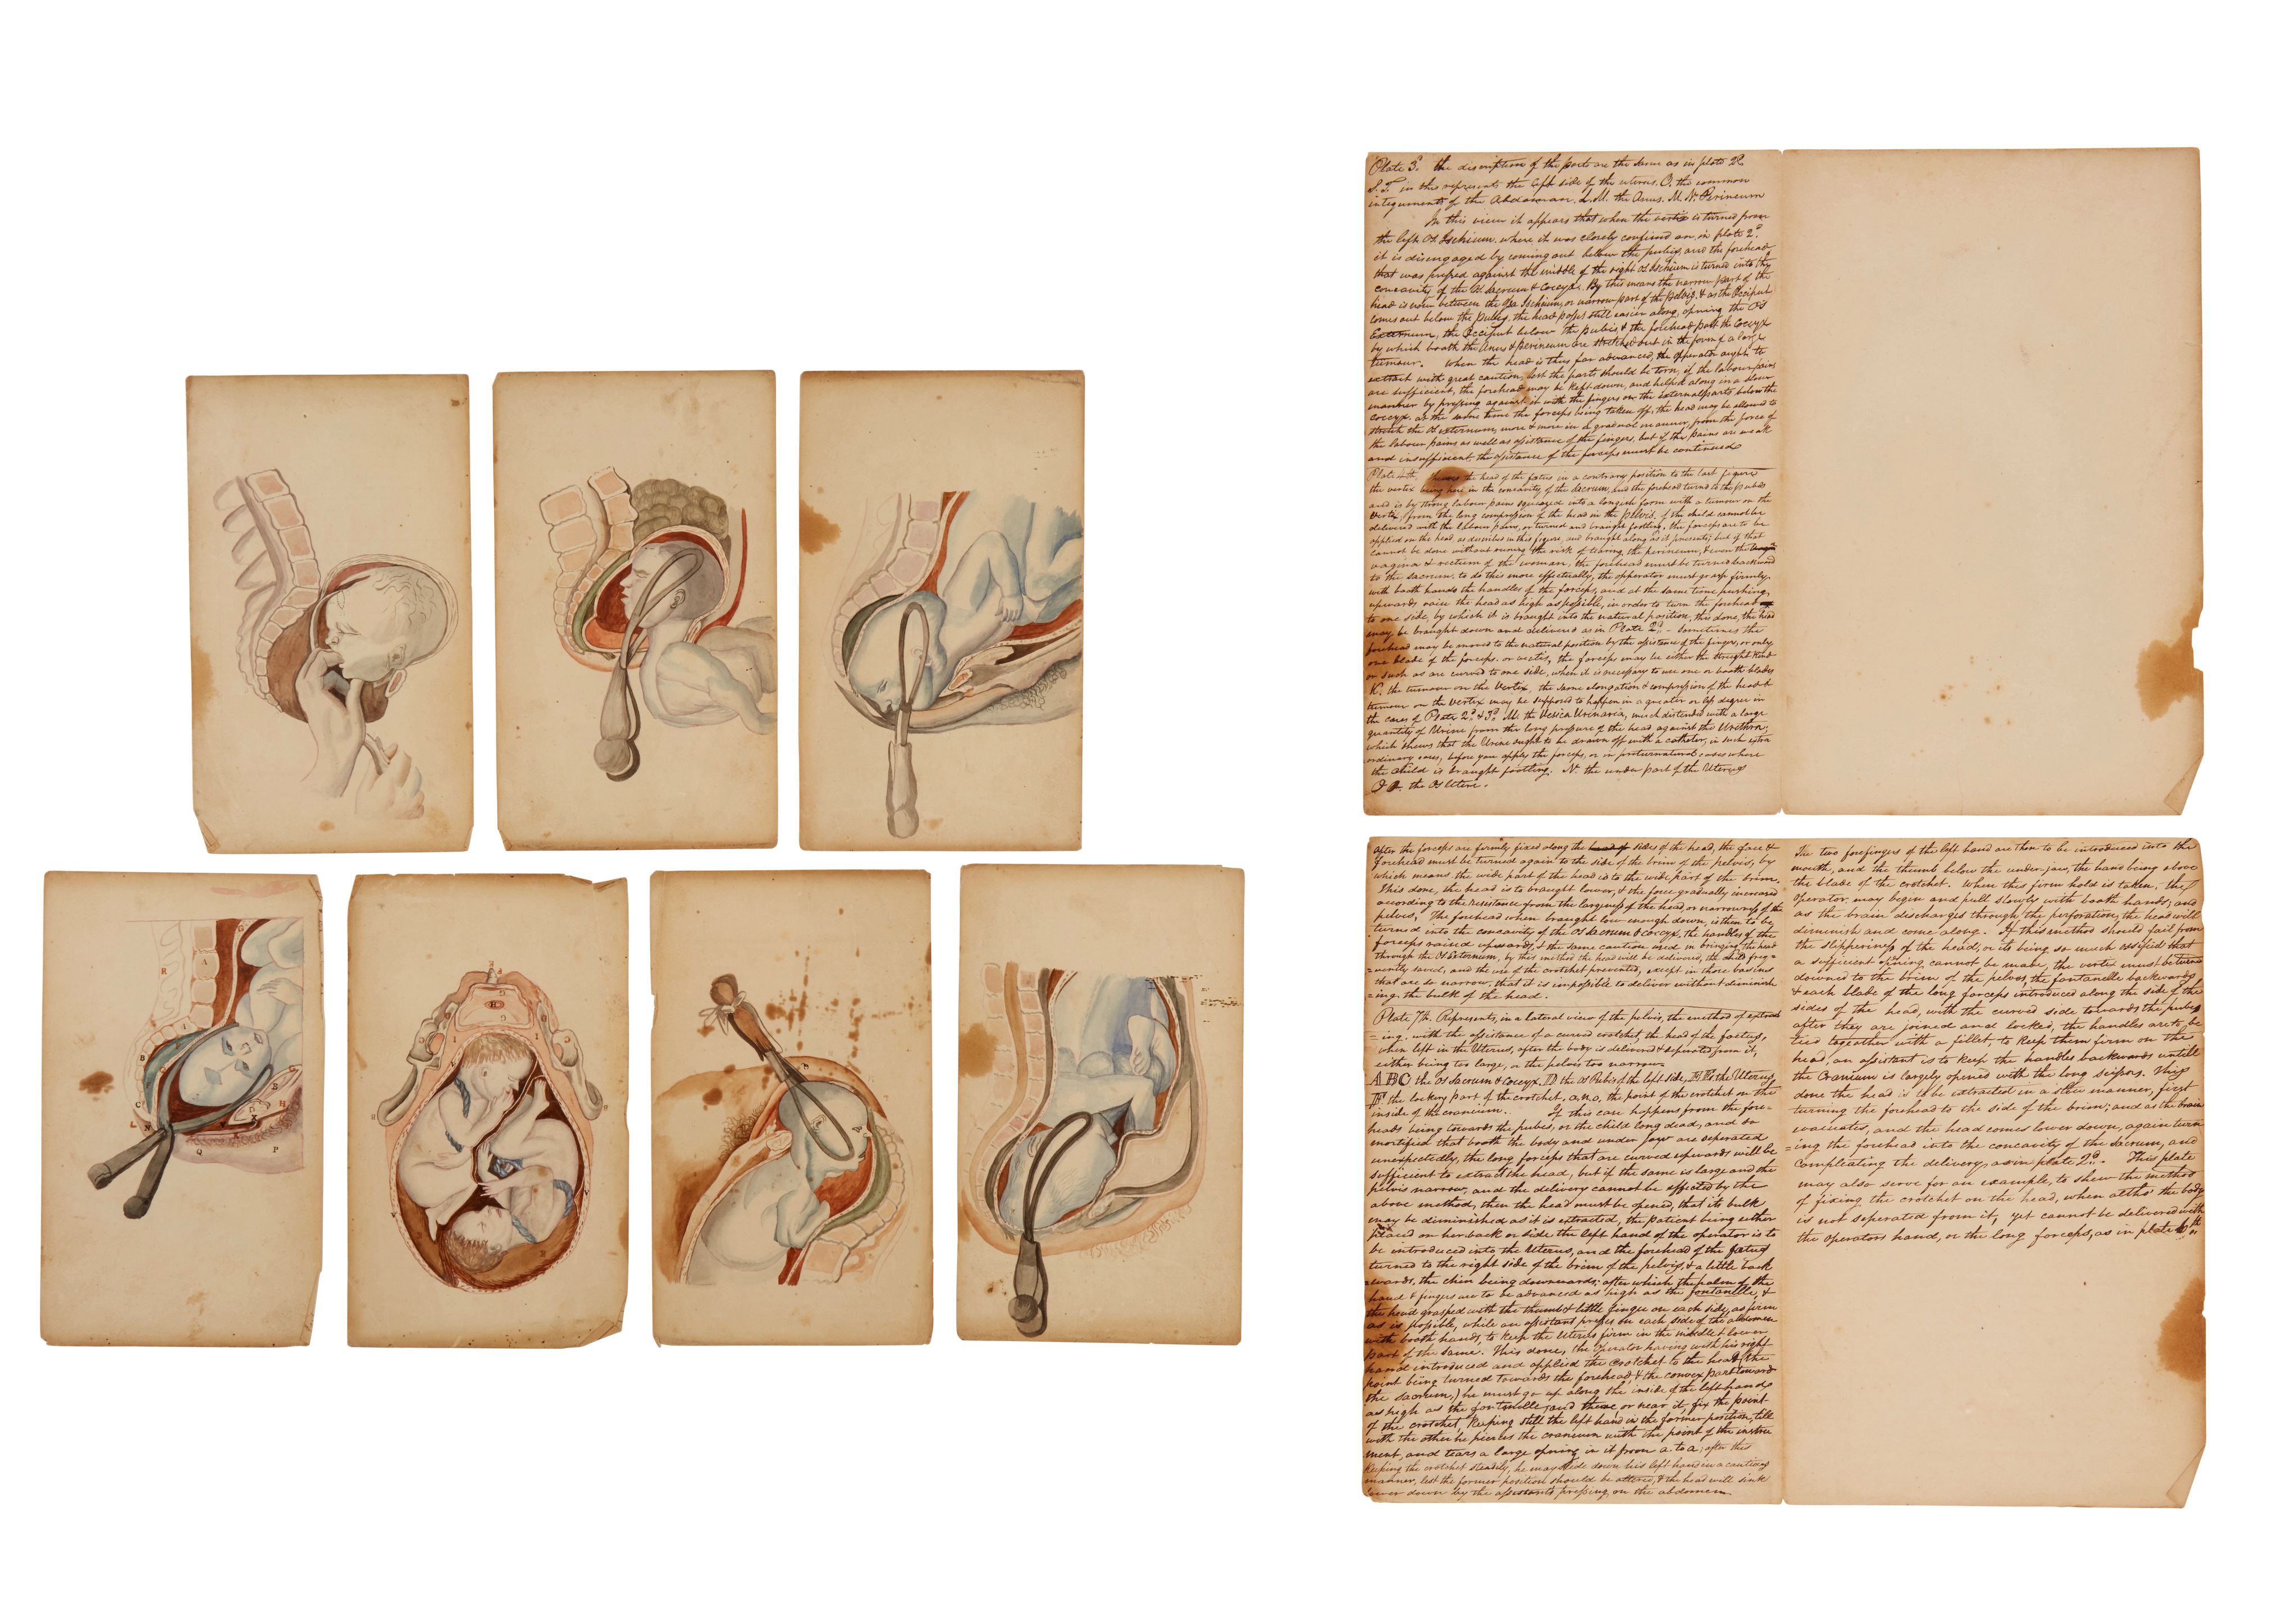 Plate 3d. the discription of the parts are the same as in plate 2d.
S.T. in this represents the left side of the uterus. O. the common
integuments of the Abdoman. L.M. the Anus. M.N. Perineum
In this view it appears that when the vertix is turned from
the left Os Ischium, where it was closely confined as in plate 2d.
it is disengaged by coming out below the pubis, and the forehead
that was pressed against the middle of the right os Ischium is turned into the
concavity of the Os Sacrum & Cocyx. By this means the narrow part of the
head is now between the Ossa Ischium, or narrow part of the pelvis, & as the Occiput
comes out below the pubis, the head passes still easier along, opening the Os
Externum, the Occiput below the pubis, & the forehead past the Cocyx
by which booth the Anus & perineum are stretched out in the form of a large
tumour. When the head is thus far advanced, the operator aught to
extract with great caution, lest the parts should be torn, if the labour pains
are sufficient, the forehead may be kept down, and helped along in a slow
manner by pressing against it with the fingers on the external parts below the
Cocyx. at the same time the forceps being taken off, the head may be allowed to
stretch the Os externum, more & more in a gradual manner, from the force of
the labour pains as well as assistance of the fingers, but if the pains are weak
and insufficient the assistance of the forceps must be continued
Plate 4th. shews the head of the fœtus in a contrary position to the last figure
the vertex being here in the concavity of the Sacrum, and the forehead turned to the pubis
and is by strong labour pains squeazed into a longish form with a tumour on the
Vertix, from the long compression of the head in the pelvis. if the child cannot be
delivered with the labour pains, or turned and braught footling, the forceps are to be
applied on the head, as describes in this figure, and braught along as it presents; but if that
cannot be done without runing the risk of tearing the perineum, & even the
vagina & rectum of the woman, the forehead must be turned backward
to the sacrum. to do this more effectually, the opperator must grasp firmly
with booth hands the handles of the forceps, and at the same time pushing
upwards raise the head as high as possible, in order to turn the forehead
to one side, by which it is braught into the natural position, this done, the head
may be braught down and delivered as in Plate 2d. - Sometimes the
forehead may be moved to the natural position by the assistance of the fingers, or only
one blade of the forceps. or vectis, the forceps may be either the straight kind
or such as are curved to one side, when it is necessary to use one or booth blades
K. the tumour on the Vertex, the same elongation & compression of the head &
tumour on the vertix may be supposed to happen in a greater or less degree in
the cases of Plate 2d. & 3d. M. the Vesica Urinaria, much distended with a large
quantity of Urine from the long pressure of the head against the Urethra;
which shews that the Urine ought to be drawn off with a catheter, in such extra
ordinary cases, before you apply the forceps, or in preturnatural cases where
the child is braught footling. N. the under part of the Uterus
O. the Os Uteri.
after the forceps are firmly fixed along the sides of the head, the face &
forehead must be turned again to the side of the brim of the pelvis, by
which means the wide part of the head is to the wide part of the brim.
This done, the head is to braught lower, & the force gradually increased
according to the resistance from the largeness of the head, or narrowness of the
pelves, The forehead when braught low enough down, is then to be
turned into the concavity of the Os sacrum & Cocyx, the handles of the
forceps raised upwards, & the same caution used in bringing the head
through the Os Externum, by this method the head will be delivered, the child freq-
=uently saved, and the use of the crotchet prevented, exept in those basins
that are so narrow, that it is impossible to deliver without diminish
=ing the bulk of the head.
Plate 7th. Represents, in a lateral view of the pelvis, the method of extract
=ing, with the assistance of a curved crotchet, the head of the fœtus,
when left in the Uterus, after the body is delivered & seperated from it,
either being too large, or the pelves too narrow
ABC the Os sacrum & Cocyx, D the Os Pubis of the left side, EE the Uterus,
F the locking part of the crotchet, a.n.o. the point of the crotchet on the
inside of the cranium. If this case happens from the fore=
heads being towards the pubis, or the child long dead, and so
mortified that booth the body and under jaw are separated
unexpectedly, the long forceps that are curved upwards will be
sufficient to extract the head, but if the same is large and the
pelvis narrow, and the delivery cannot be effected by the
above method, then the head must be opened, that its bulk
may be diminished as it is extracted, the patient being either
placed on her back or side the left hand of the operator is to
be introduced into the Uterus, and the forehead of the fœtus
turned to the right side of the brim of the pelvis, & a little back
=wards, the chin being downwards; after which the palm of the
hand & fingers are to be advanced as high as the fontanelle, &
the head grasped with the thumb & little finger on each side, as firm
as is possible, while an assistant presses on each side of the abdomen
with booth hands, to keep the Uterus firm in the middle & lower
part of the same. This done, the Operator having with his right
hand introduced and applied the crotchet to the head (the
point being turned towards the forehead & the convex part toward
the sacrum,) he must go up along the inside of the left hand
as high as the fontanelle, and there or near it, fix the point
of the crotchet, keeping still the left hand in the former position, till
with the other he pierces the cranium with the point of the instru
ment, and tears a large opening in it from a to a; after this
keeping the crotchet steadily, he may slide down his left hand in a cautious
manner, lest the former position should be altered, & the head will sink
lower down by the assistants pressing on the abdomen
The two forefingers of the left hand are then to be introduced into the
mouth, and the thumb below the under jaw, the hand being above
the blade of the crotchet. When this firm hold is taken, the
Operator may begin and pull slowly with booth hands; and
as the brain discharges through the perforation, the head will
diminish and come along. If this method should fail from
the slipperiness of the head, or its being so much ossified that
a sufficient opining cannot be made, the vertex must be turned
downed to the brim of the pelvis, the fontanelle backwards
& each blade of the long forceps introduced along the side of the
sides of the head, with the curved side towards the pubes
after they are joined and locked, the handles are to be
tied togeather with a fillet, to keep them firm on the
head, an assistant is to keep the handles backwards untill
the Cranium is largely opened with the long scissors. This
done the head is to be extracted in a slow manner, first
turning the forehead to the side of the brim; and as the brain
evacuates, and the head comes lower down, again turn
=ing the forehead into the concavity of the sacrum, and
Compleating the delivery, as in plate 2d. This plate
may also serve for an example, to shew the method
of fixing the crotchet on the head, when altho' the body
is not seperated from it, yet cannot be delivered with
the operators hand, or the long forceps, as in plate 6th